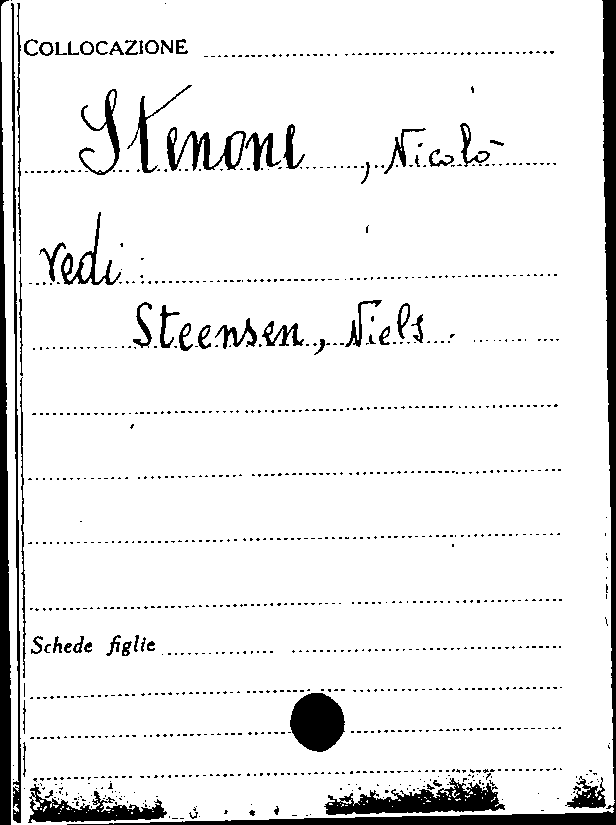 COLLOCAZIONE
Stenone, Nicolò
vedi:
Steensen, Niels.
Schede figlie